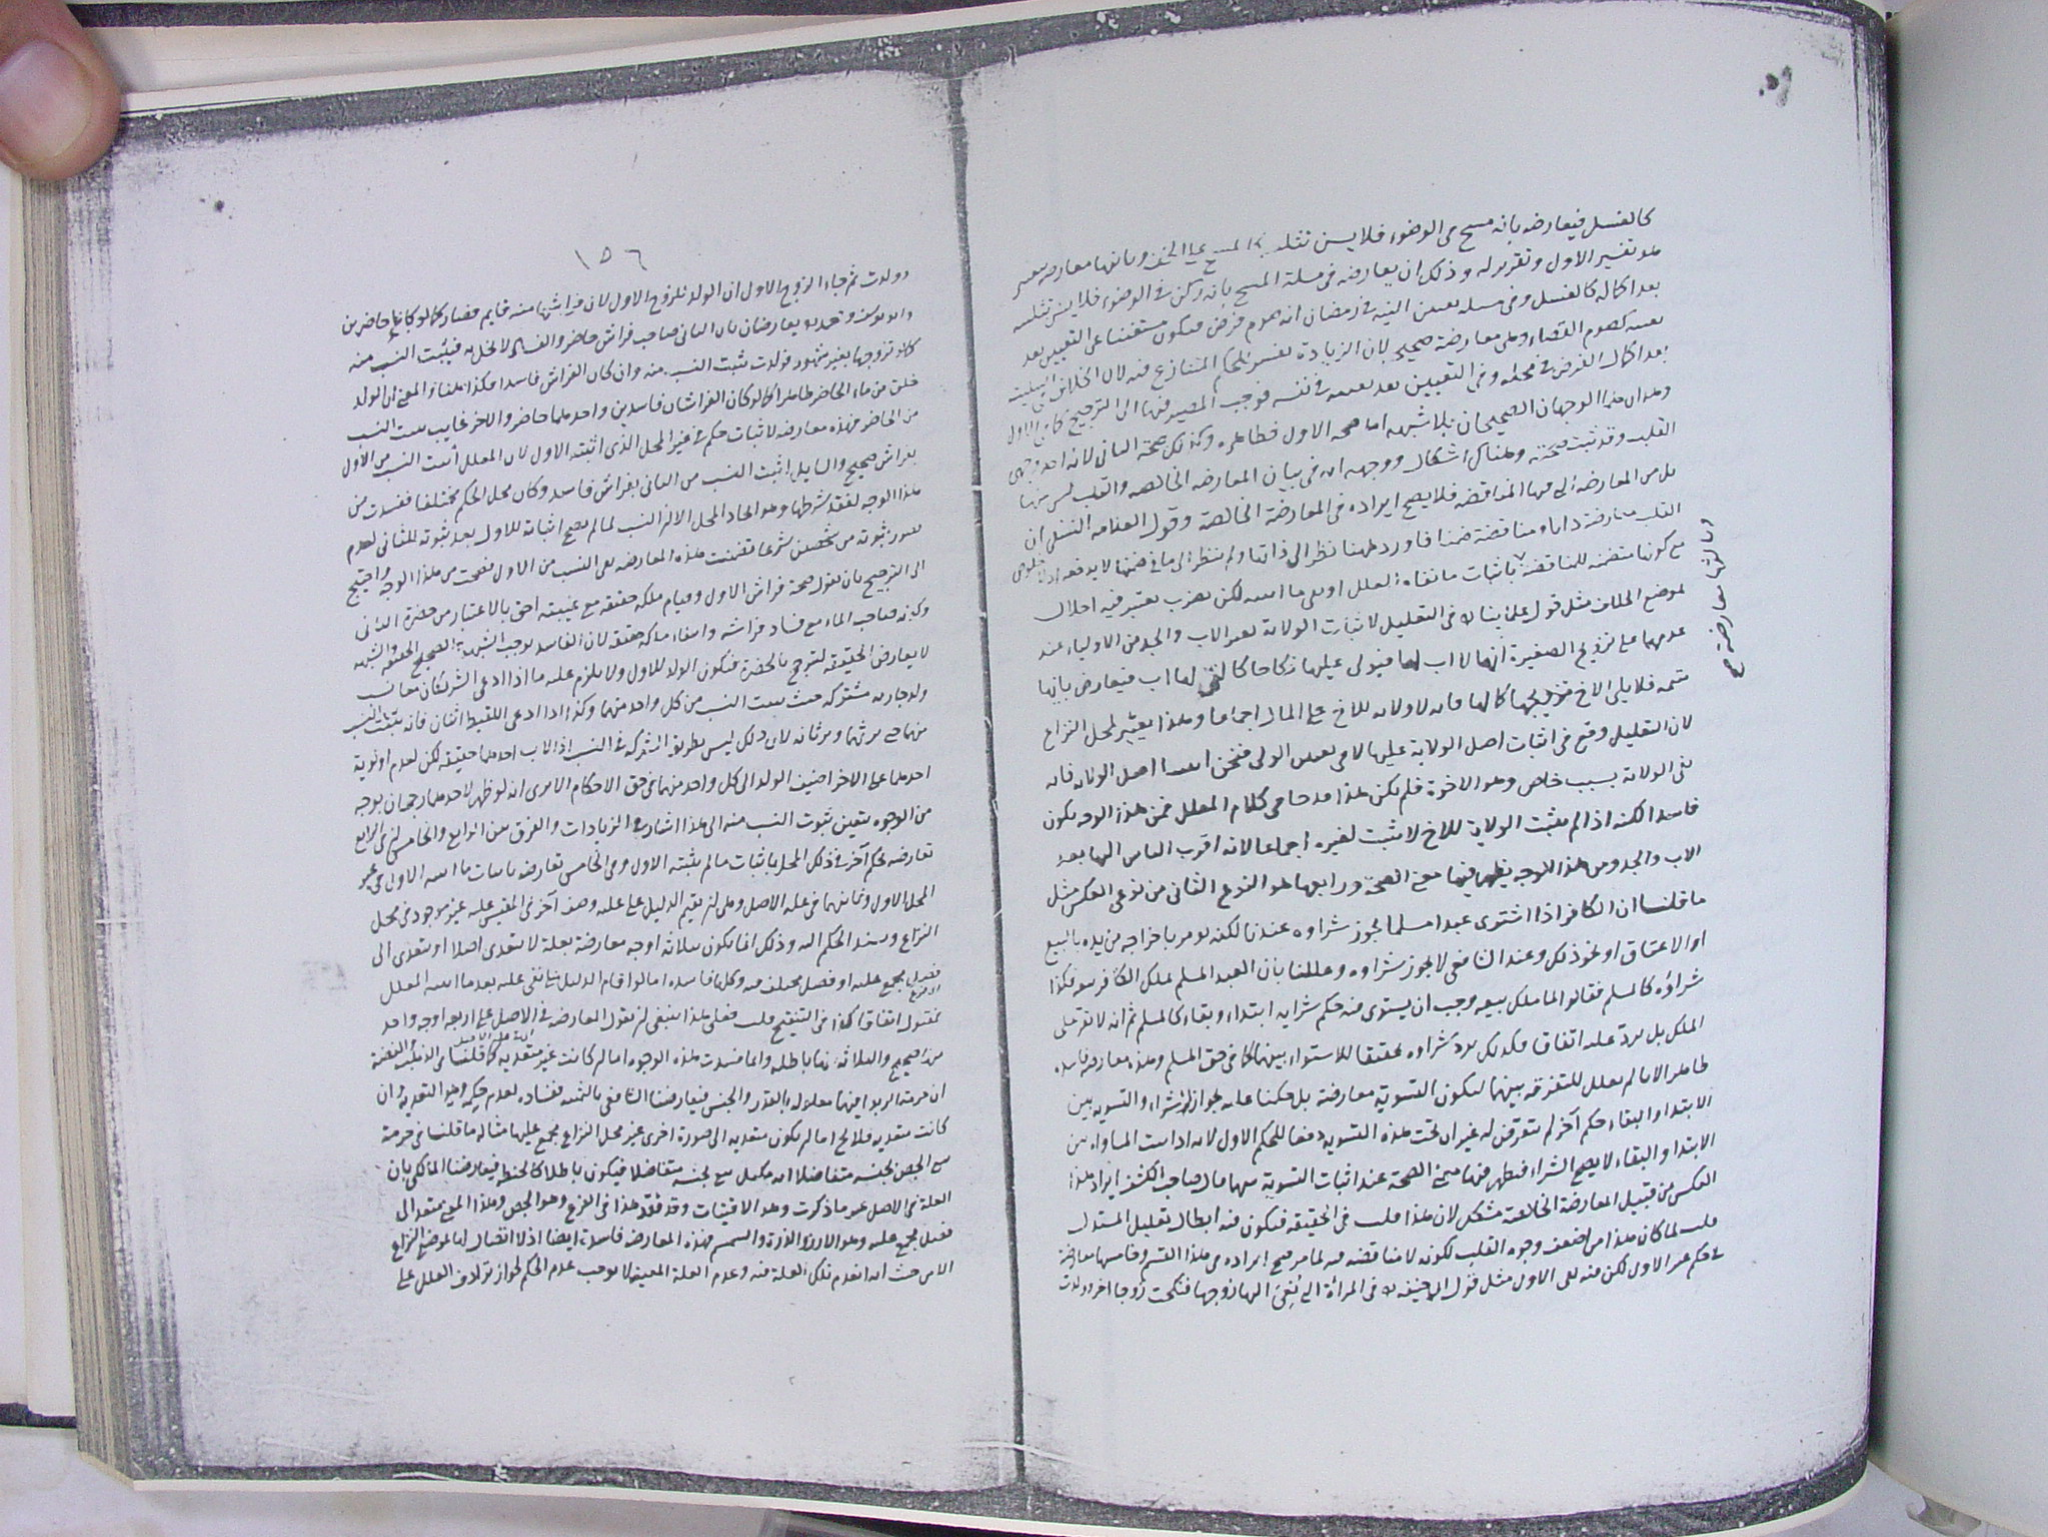 كالغسل فيعارضه بانه مسح في الوضوء فلا يسن تثليثه كالمسح على الخف وثانيها معارضة بتغيير
هو تفسير الاول وتقرير له وذلك ان يعارضه في مسئلة المسح بانه ركن في الوضوء فلا يسن تثليثه
بعد اكماله كالغسل وفي مسئلة تعيين النية في رمضان انه صوم فرض فيكون مستغنيا عن التعيين بعد
تعينه كصوم القضاء وهي معارضة صحيحة لان الزيادة تفسير للحكم المتنازع فيه لان الخلاف في التثليث
بعد اكمال الفرض في محله وفي التعيين بعد تعينه في نفسه فوجب المصير فيها الى الترجيح كما في الاول
وهذان الوجهان الصحيحان بلا شبهة اما صحة الاول فظاهرة وكذلك صحة الثاني لانه احد وجهي
القلب وقد ثبت صحته وهناك اشكال ووجهه انه في بيان المعارضة الخالصة والقلب ليس منها
بل من المعارضة التي فيها المناقضة فلا يصح ايراده في المعارضة الخالصة وقول العلامة النسفي ان
القلب معارضة ذاتا ومناقضة ضمنا فاورد ههنا نظرا الى ذاتها ولم ينظر الى ما في ضمنها لا يدفعه اذ لا خلوص
مع كونها متضمنة للمناقضة باثبات ما نفاه المعلل او نفي ما اثبته لكن بضرب تغيير فيه اخلال
لموضع الخلاف مثل قول علمائنا في التعليل لاثبات الولاية لغير الاب والجد من الاولياء عند
عدمهما على تزويج الصغيرة انها لا اب لها فيولى عليها نكاحا كالتي لها اب فيعارض بانها
يتيمة فلا يلي الاخ تزويجها كمالها فانه لا ولاية للاخ على المال اجماعا وهذا تغيير لمحل النزاع
لان التعليل وقع في اثبات اصل الولاية عليها لا في تعيين الولي فنحن اثبتنا اصل الولاية فانه
نفى الولاية بسبب خاص وهو الاخوة فلم يكن هذا قدحا في كلام المعلل فمن هذا الوجه يكون
فاسدا لكنه اذا لم يثبت الولاية للاخ لا يثبت لغيره اجماعا لانه اقرب الناس اليها بعد
الاب والجد ومن هذا الوجه يظهر فيها معنى الصحة ورابعها هو النوع الثاني من نوعي العكس مثل
ما قلنا ان الكافر اذا اشترى عبدا مسلما يجوز شراؤه عندنا لكنه يؤمر باخراجه من يده بالبيع
او الاعتاق او نحو ذلك وعند الشافعي لا يجوز شراؤه وعللنا بان العبد المسلم يملك الكافر بيعه فكذا
شراؤه كالمسلم فقالوا لما ملك بيعه وجب ان يستوي فيه حكم شرايه ابتداء وبقاء كالمسلم ثم انه لا يقر على
الملك بل يرد عليه اتفاقا فكذلك يرد شراؤه تحقيقا للاستواء بينهما كما في حق المسلم وهذه معارضة فاسدة
ظاهرا لانا لم نعلل للتفرقة بينهما ليكون التسوية معارضة بل حكمنا عليه بجواز الشراء والتسوية بين
الابتداء والبقاء حكم آخر لم نتعرض له غير ان تحت هذه التسوية دفعا للحكم الاول لانه اذا ثبت المساواة بين
الابتداء والبقاء لا يصح الشراء فيظهر فيها معنى الصحة عند اثبات التسوية بينهما قال صاحب الكشف ايراد هذا
العكس من قبيل المعارضة الخالصة مشكل لان هذا قلب في الحقيقة فيكون فيه ابطال تعليل المستدل
قلت لما كان هذا من اضعف وجوه القلب لكونه لا مناقضة فيه لما مر صح ايراده في هذا القسم وخامسها معارضة
في حكم غير الاول لكن فيه نفي الاول مثل قول ابي حنيفة في المراة التي نعي اليها زوجها فنكحت زوجا آخر او ولدت
اما التي معارضة صح
١٥٦
وولدت ثم جاء الزوج الاول ان الولد للزوج الاول لان فراشها منه قايم فصار كما لو كانا حاضرين
وابو يوسف ومحمد يعارضان بان الثاني صاحب فراش حاضر والغالب لا يخل به فيثبت النسب منه
كما لو تزوجها بغير شهود فولدت يثبت النسب منه وان كان الفراش فاسدا فكذا هذا والمعنى ان الولد
خلق من ماء الحاضر ظاهرا كما لو كان الفراشان فاسدين واحدهما حاضر والاخر غايب يثبت النسب
من الحاضر فهذه معارضة لاثبات حكم في غير المحل الذي اثبته الاول لان المعلل اثبت النسب من الاول
بفراش صحيح والسايل اثبت النسب من الثاني بفراش فاسد وكان محل الحكم مختلفا ففسدت من
هذا الوجه لفقد شرطها وهو اتحاد المحل الا ان النسب لما لم يصح اثباته للاول بعد ثبوته للثاني لعدم
تصور ثبوته من شخصين شرعا تضمنت هذه المعارضة نفي النسب من الاول فصحت من هذا الوجه واحتيج
الى الترجيح بان نقول صحة فراش الاول وقيام ملكه حقيقة مع غيبته احق بالاعتبار من حضرة الثاني
وكونه صاحب الماء مع فساد فراشه وانتفاء ملكه حقيقة لان الفاسد يوجب الشبهة والصحيح الحقيقة والشبهة
لا يعارض الحقيقة لترجح بالحضرة فيكون الولد للاول ولا يلزم عليه ما اذا ادعى الشريكان معا نسب
ولد جارية مشتركة حيث يثبت النسب من كل واحد منهما وكذا اذا ادعى اللقيط اثنان فانه يثبت النسب
منهما حتى يرثهما ويرثانه لان ذلك ليس بطريق الشركة في النسب اذ الاب احدهما حقيقة لكن لعدم اولوية
احدهما على الاخر اضيف الولد الى كل واحد منهما في حق الاحكام الا ترى انه لو ظهر لاحدهما رجحان بوجه
من الوجوه يتعين ثبوت النسب منه الى هذا اشار في الزيادات والفرق بين الرابع والخامس ان في الرابع
تعارضه بحكم آخر في ذلك المحل باثبات ما لم يثبته الاول وفي الخامس تعارضه باثبات ما اثبته الاول في غير
المحل الاول وثانيهما في علة الاصل وهي ان يقيم الدليل على علية وصف آخر في المقيس عليه غير موجود في محل
النزاع ويسند الحكم اليه وذلك انما يكون بثلاثة اوجه معارضة بعلة لا تتعدى اصلا او تتعدى الى
فصل مجمع عليه او فصل مختلف فيه وكلها فاسدة اما لو اقام الدليل على نفي علية بعد ما اثبته المعلل
فمقبول اتفاقا كذا في التنقيح قلت فعلى هذا ينبغي ان يقول المعارضة في الاصل على اربعة اوجه واحد
منها صحيح والثلاثة منها باطلة وانما فسدت هذه الوجوه اما لم كانت غير متعدية كما قلنا في الذهب والفضة
ان حرمة الربوا فيهما معلولة بالقدر والجنس فيعارضنا الشافعي بالثمنية ففساده لعدم حكمه وهو التعدية وان
كانت متعدية فلا يخ اما ان يكون متعدية الى صورة اخرى غير محل النزاع مجمع عليها مثاله ما قلنا في حرمة
بيع الجص بجنسه متفاضلا انه مكيل بيع بجنسه متفاضلا فيكون باطلا كالحنطة فيعارضنا المالكي بان
العلة في الاصل غير ما ذكرت وهو الاقتيات وقد فقد هذا في الفرع وهو الجص وهذا المعنى يتعدى الى
فصل مجمع عليه وهو الارز والذرة والسمسم فهذه المعارضة فاسدة ايضا اذ لا اتصال لها بموضع النزاع
الا من حيث انه انعدم تلك العلة فيه وعدم العلة المعينة لا يوجب عدم الحكم لجواز ترادف العلل على